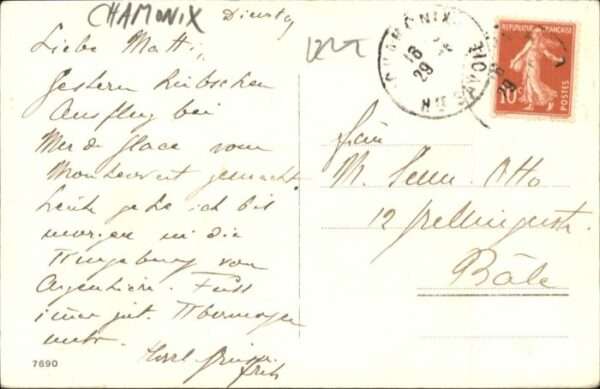 CHAMONIX
Dienstag
Liebe Matti,
Gestern hübschen
Ausflug bei
Mer de Glace vom
Montenvert gemacht
heute gehe ich bis
morgen in die
Umgebung von
Argentière.
immer gut. Übermorgen
mehr.
Herzl.
Fritz
7690
CHAMONIX
18
29
HTE SAVOIE
REPUBLIQUE FRANÇAISE
10c
POSTES
M. Senn-Otto
12
Bâle